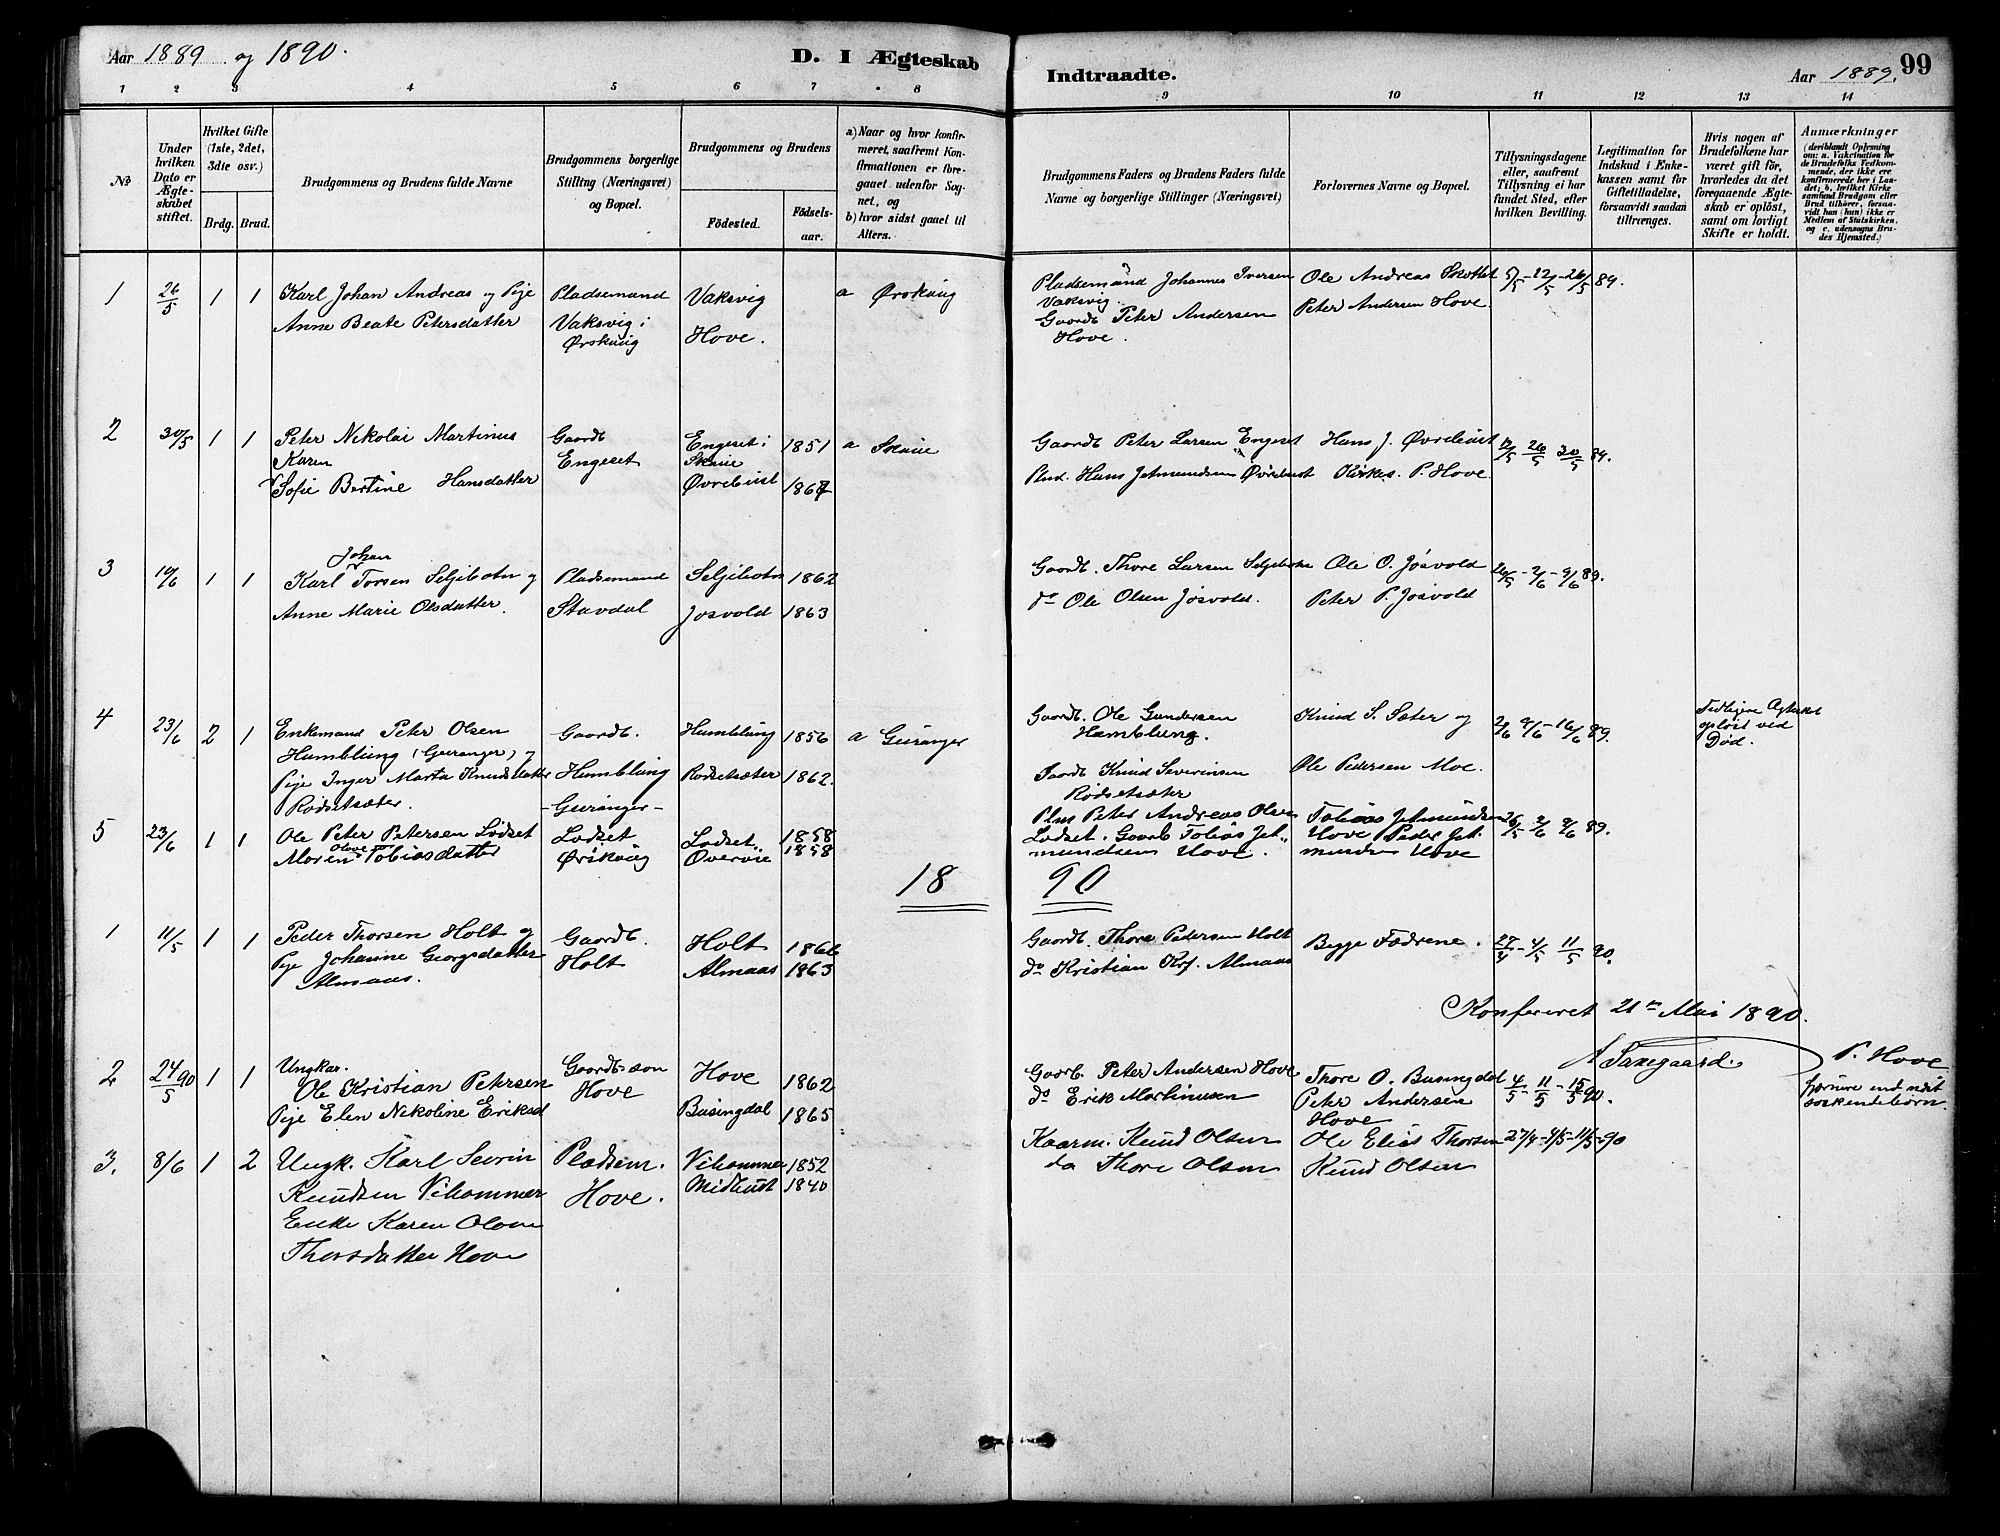 Aar 1889 og 1890.
D. I Ægteskab Indtraadte.
Aar 1889. 99
1 2 3 4 5 6 7 8 9 10 11 12 13 14
No
Under hvilken Dato er Ægteskabet stiftet.
Hvilket Gifte (1ste, 2det, 3die osv.)
Brdg. Brud.
Brudgommens og Brudens fulde Navne
Brudgommens borgerlige Stilling (Næringsvei) og Bopæl.
Brudgommens og Brudens
Fødested.
Fødselsaar.
a) Naar og hvor konfirmeret, saafremt Konfirmationen er foregaaet udenfor Sognet, og
b) hvor sidst gaaet til Alters.
Brudgommens Faders og Brudens Faders fulde Navne og borgerlige Stillinger (Næringsvei)
Forlovernes Navne og Bopæl.
Tillysningsdagene eller, saafremt Tillysning ei har fundet Sted, efter hvilken Bevilling.
Legitimation for Indskud i Enkekassen samt for Giftetilladelse, forsaavidt saadan tiltrænges.
Hvis nogen af Brudefolkene har været gift før, hvorledes da det foregaaende Ægteskab er opløst, samt om lovligt Skifte er holdt.
Anmærkninger (deriblandt Oplysning om: a. Vakcination for de Brudefolks Vedkommende, der ikke ere konfirmerede her i Landet; b. hvilket Kirkesamfund Brudgom eller Brud tilhører, forsaavidt han (hun) ikke er Medlem af Statskirken, og c. udensogns Brudes Hjemsted.)
1 26/5 1 1 Karl Johan Andreas og Pige
Anne Beate Petersdatter
Pladsemand
Vaksvig i
Ørskoug
Vaksvig
Hove.
a Ørskoug
Pladsemand Johannes Iversen
Vaksvig.
Gaardb Peter Andersen
Hove.
Ole Andreas Skottet
Peter Andersen Hove.
5/5 - 12/5 - 26/5 89.
2 30/5 1 1 Peter Nikolai Martinus
Karen
Sofie Bertine Hansdatter
Gaardb
Engeset
Engeset i
Skaue
Øvrebust
1851
1867
a Skaue
Gaardb Peter Larsen Engeset
Plad. Hans Jetmundsen Øvrebust
Hans J. Øvrebust
Kirkes. P. Hove.
12/5 26/5 30/5 89.
3 10/6 1 1 Johan
Karl Torsen Seljebotn og
Anne Marie Olsdatter.
Pladsemand
Stavdal
Seljebotn 1862
Josvold 1863
Gaardb. Thore Larsen Seljebotn
do Ole Olsen Josvold.
Ole O. Josvold
Peter P. Josvold
26/5 - 2/6 - 9/6 89.
4 23/6 2 1 Enkemand Peter Olsen
Humblung (Geiranger) og
Pige Inger Marta Knudsdatter
Rødsetsæter.
Gaardb.
Humblung
- Geiranger -
Humblung 1856
Rødsetsæter 1862.
a Geiranger
Gaardb. Ole Gundersen
Humblung.
Gaardb Knud Severinsen
Rødsetsæter
Knud S. Sæter og
Ole Pedersen Moe.
2/6 9/6 - 16/6 89.
Tidligere Ægteskab
opløst ved
Død.
5 23/6 1 1 Ole Peter Petersen Lødset
Olave
Maren Tobiasdatter
Lødset
Ørskoug
Lødset 1858
Overvie 1858
Plas Peter Andreas Olsen
Lødset. Gaardb Tobias Jet-
mundsen Hove.
Tobias Jetmundsen
Hove Peder Jet-
mundsen Hove
26/5 2/6 9/6 89.
18 90
1 11/5 1 1 Peder Thorsen Holt og
Pige Johanne Georgsdatter
Almaas.
Gaardb.
Holt
Holt 1866
Almaas 1863
Gaardb. Thore Pedersen Holt
do Kristian Krf. Almaas
Begge Fædrene.
27/4 - 4/5 11/5 90.
Konfereret 21de Mai 1890.
Saxegaard.
P. Hove
2 24/5 90 1 1 Ungkar.
Ole Kristian Petersen
Pige Elen Nikoline Eriksd
Gaardb-søn
Hove
Hove 1862
Busingdal 1865
Gaardb. Peter Andersen Hove
do Erik Martinusen
Thore O. Busingdal
Peter Andersen
Hove
4/5 - 11/5 - 15/5 90.
fjernere end næst
søskendebørn.
3. 8/6 1 2 Ungk. Karl Sevrin
Knudsen Vihammer
Enke Karen Olave
Thorsdatter Hove
Pladsem.
Hove.
Vihammer 1852
Midhust 1840
Kaarm. Knud Olsen
do Thore Olsen
Ole Elias Thorsen
Knud Olsen
27/4 - 4/5 - 11/5 - 90